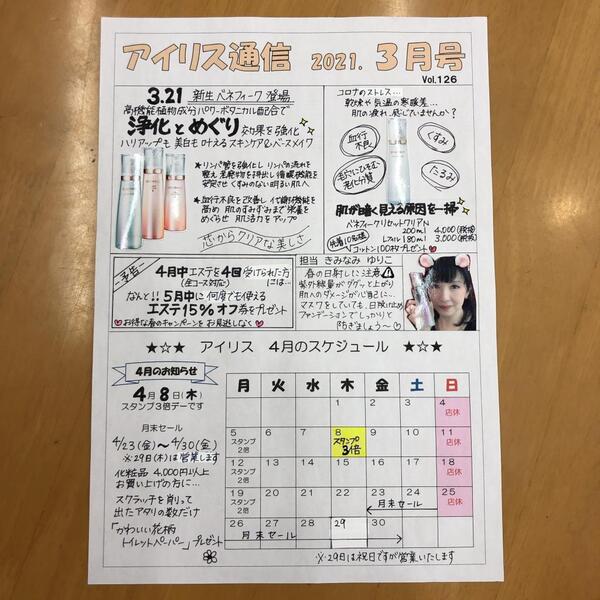 アイリス通信 2021. 3月号
Vol.126
3.21 新生ベネフィーク登場
高機能植物成分パワーボタニカル配合で
浄化とめぐり効果を強化
ハリアップも美白も叶えるスキンケア&ベースメイク
・リンパ管を強化しリンパの流れを
整え老廃物を排出し循環機能を
安定させくすみのない明るい肌へ
・血行不良を改善し代謝機能を
高め肌のすみずみまで栄養を
めぐらせ肌活力をアップ
芯からクリアな美しさ
コロナのストレス…
乾燥や気温の寒暖差…
肌の疲れ、感じていませんか?
血行不良
くすみ
毛穴にひそむ老化分質
たるみ
肌が暗く見える原因を一掃
ベネフィークリセットクリアN
200ml 4,000(税抜)
レフィル180ml 3,000(税抜)
先着10名様
コットン100枚プレゼント
予告
4月中エステを4回受けられた方
(全コース対応) には…
なんと!!5月中に何度でも使える
エステ15%オフ券をプレゼント
お得な春のキャンペーンをお見逃しなく
担当 きみなみ ゆりこ
春の日射しに注意
紫外線量がググッと上がり
肌へのダメージが心配に…
マスクをしていても、日焼け止め
ファンデーションでしっかりと
防ぎましょう〜
★☆★ アイリス 4月のスケジュール ★☆★
4月のお知らせ
4月8日(木)
スタンプ3倍デーです
月末セール
4/23(金)〜4/30(金)
※29日(木)は営業します
化粧品4,000円以上
お買い上げの方に…
スクラッチを削って
出たアタリの数だけ
「かわいい花柄
トイレットペーパー」プレゼント
月 火 水 木 金 土 日
1 2 3 4
店休
5 6 7 8 9 10 11
スタンプ2倍 スタンプ3倍 店休
12 13 14 15 16 17 18
スタンプ2倍 店休
19 20 21 22 23 24 25
スタンプ2倍 月末セール 店休
26 27 28 29 30
月末セール
※29日は祝日ですが営業いたします